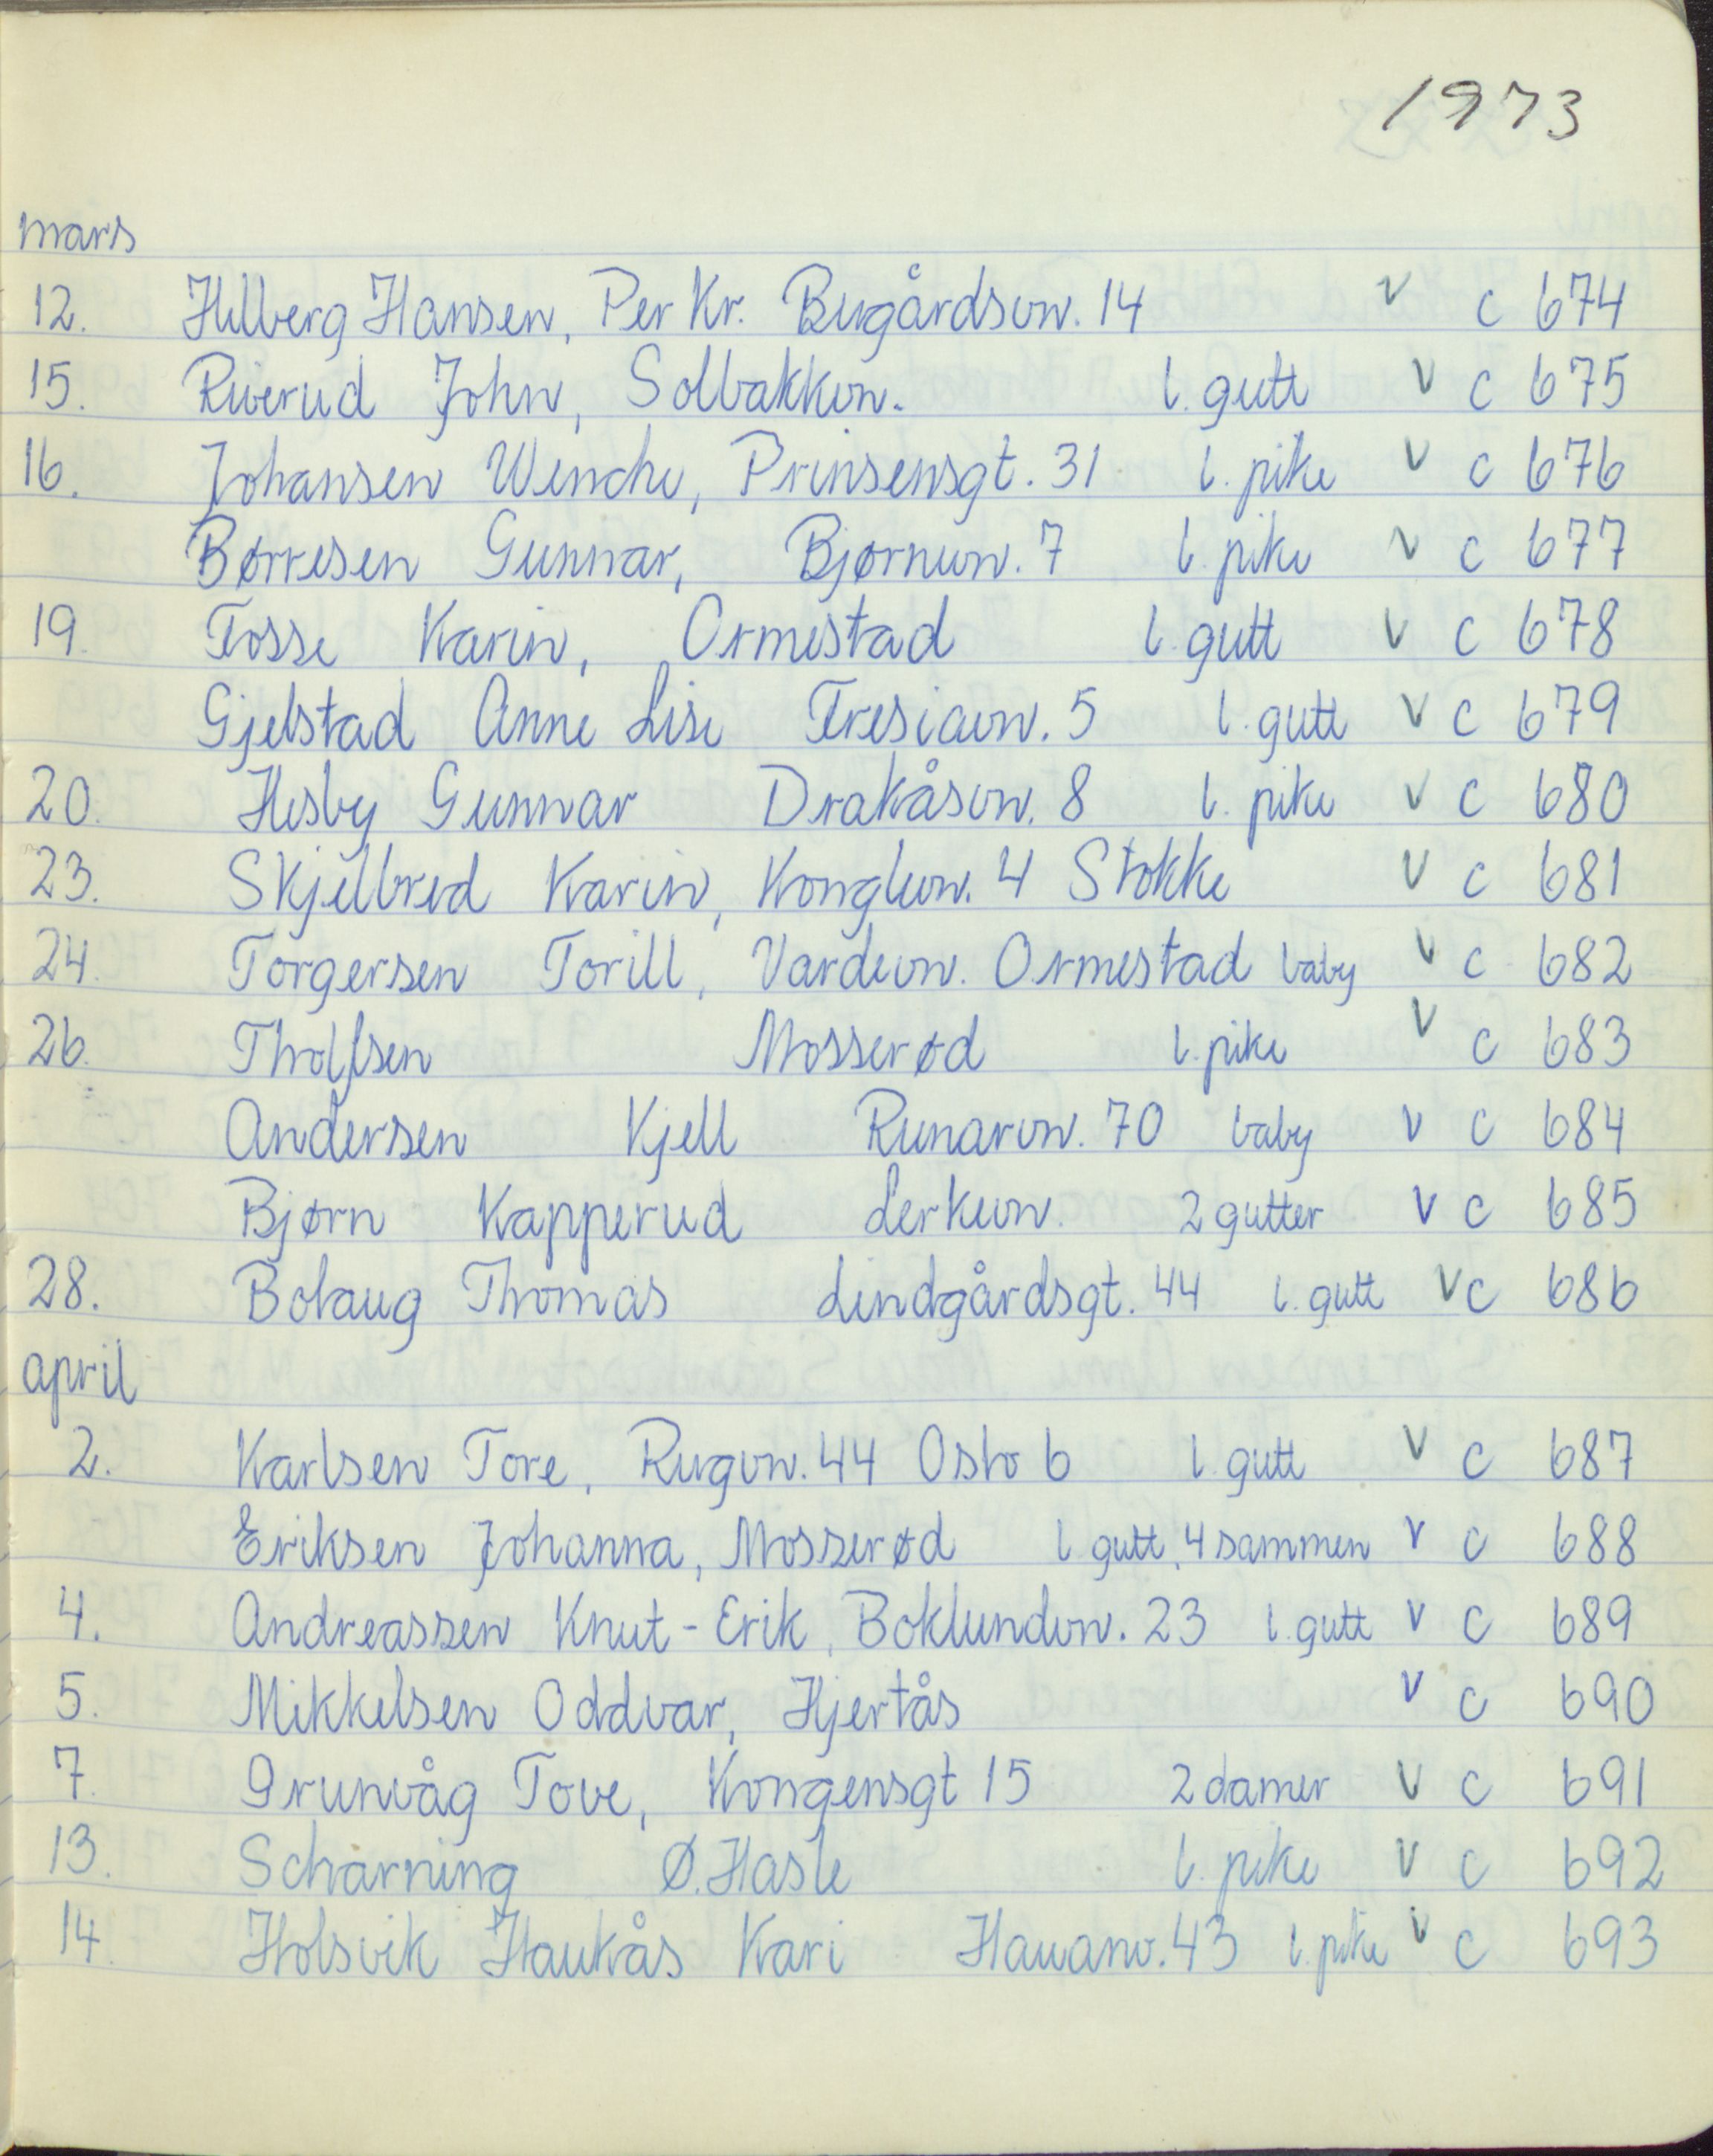 1973
mars
12. Hilberg Hansen, Per Kr. Bugårdsvn. 14 v c 674
15. Riverud John, Solbakken. l. gutt v c 675
16. Johansen Wenche, Prinsensgt. 31 l. pike v c 676
Børresen Gunnar, Bjørnevn. 7 l. pike v c 677
19. Fosse Karin, Ormestad l. gutt v c 678
Gjelstad Anne Lise Fresiavn. 5 l. gutt v c 679
20. Hesby Gunnar Drakåsvn. 8 l. pike v c 680
23. Skjelbred Karin, Konglevn. 4 Stokke v c 681
24. Torgersen Torill, Vardevn. Ormestad baby v c 682
26. Tholfsen Mosserød l. pike v c 683
Andersen Kjell Runarvn. 70 baby v c 684
Bjørn Kapperud Lerkevn. 2 gutter v c 685
28. Bolaug Thomas Lindgårdsgt. 44 l. gutt v c 686
april
2. Karlsen Tore, Rugvn. 44 Oslo 6 l. gutt v c 687
Eriksen Johanna, Mosserød l gutt, 4 sammen v c 688
4. Andreassen Knut-Erik, Boklundvn. 23 l. gutt v c 689
5. Mikkelsen Oddvar, Hjertås v c 690
7. Grunvåg Tove, Kongensgt 15 2 damer v c 691
13. Scharning Ø. Hasle l. pike v c 692
14. Holsvik Haukås Kari Hauanv. 43 l. pike v c 693